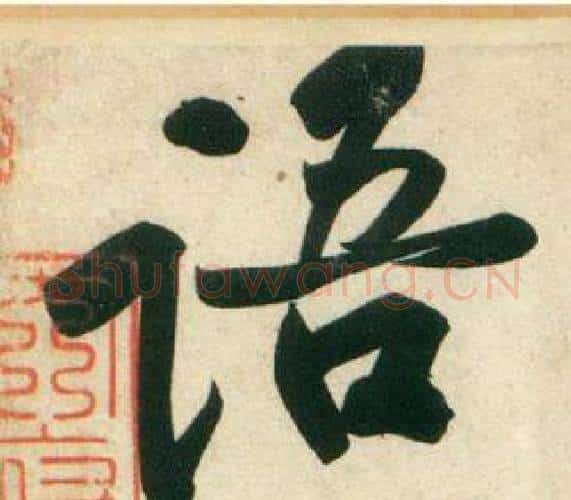 语
Shufawang.CN